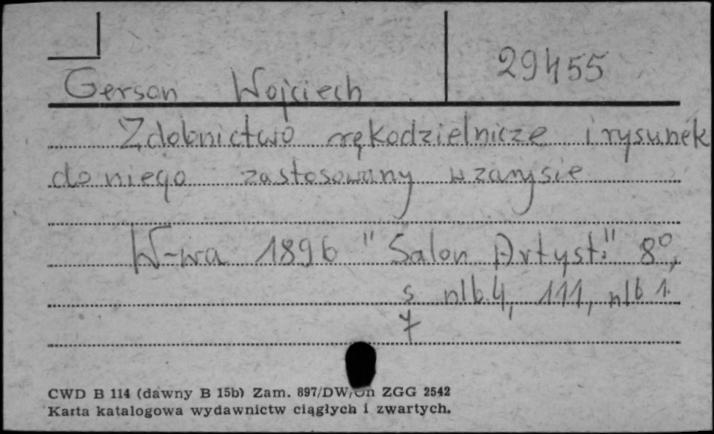 29455
Gerson Wojciech
Zdobnictwo rękodzielnicze i rysunek
do niego zastosowany w zarysie
W-wa 1896 "Salon Artyst." 8°,
s nlb 4, 111, nlb 1.
7
CWD B 114 (dawny B 15b) Zam. 897/DW/Un ZGG 2542
Karta katalogowa wydawnictw ciągłych i zwartych.